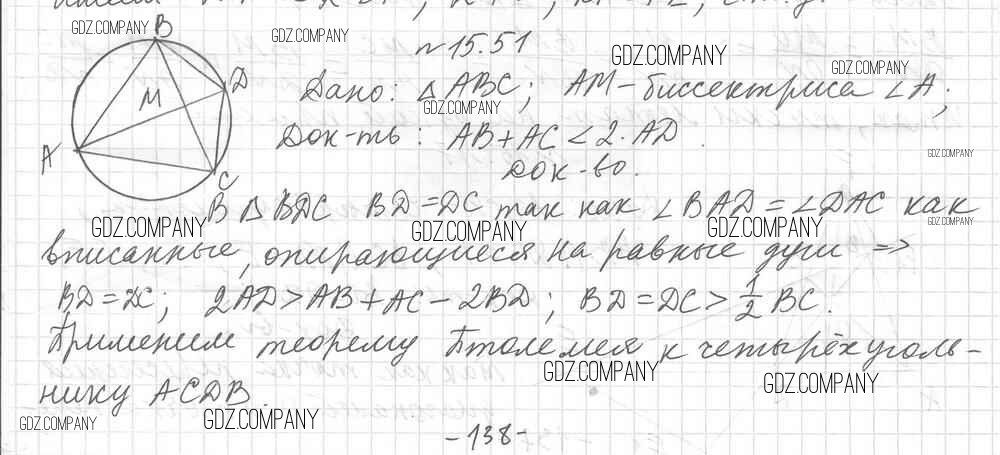 B
D
M
A
C
n 15.51
Дано: △ABC; AM-биссектриса ∠A;
Док-ть: AB+AC<2·AD.
Док-во.
В △ BDC BD=DC так как ∠BAD=∠DAC как
вписанные, опирающиеся на равные дуги =>
BD=DC; 2AD>AB+AC-2BD; BD=DC>1/2 BC.
Применим теорему Птолемея к четырёхуголь-
нику ACDB.
-138-
GDZ.COMPANY
GDZ.COMPANY
GDZ.COMPANY
GDZ.COMPANY
GDZ.COMPANY
GDZ.COMPANY
GDZ.COMPANY
GDZ.COMPANY
GDZ.COMPANY
GDZ.COMPANY
GDZ.COMPANY
GDZ.COMPANY
GDZ.COMPANY
GDZ.COMPANY